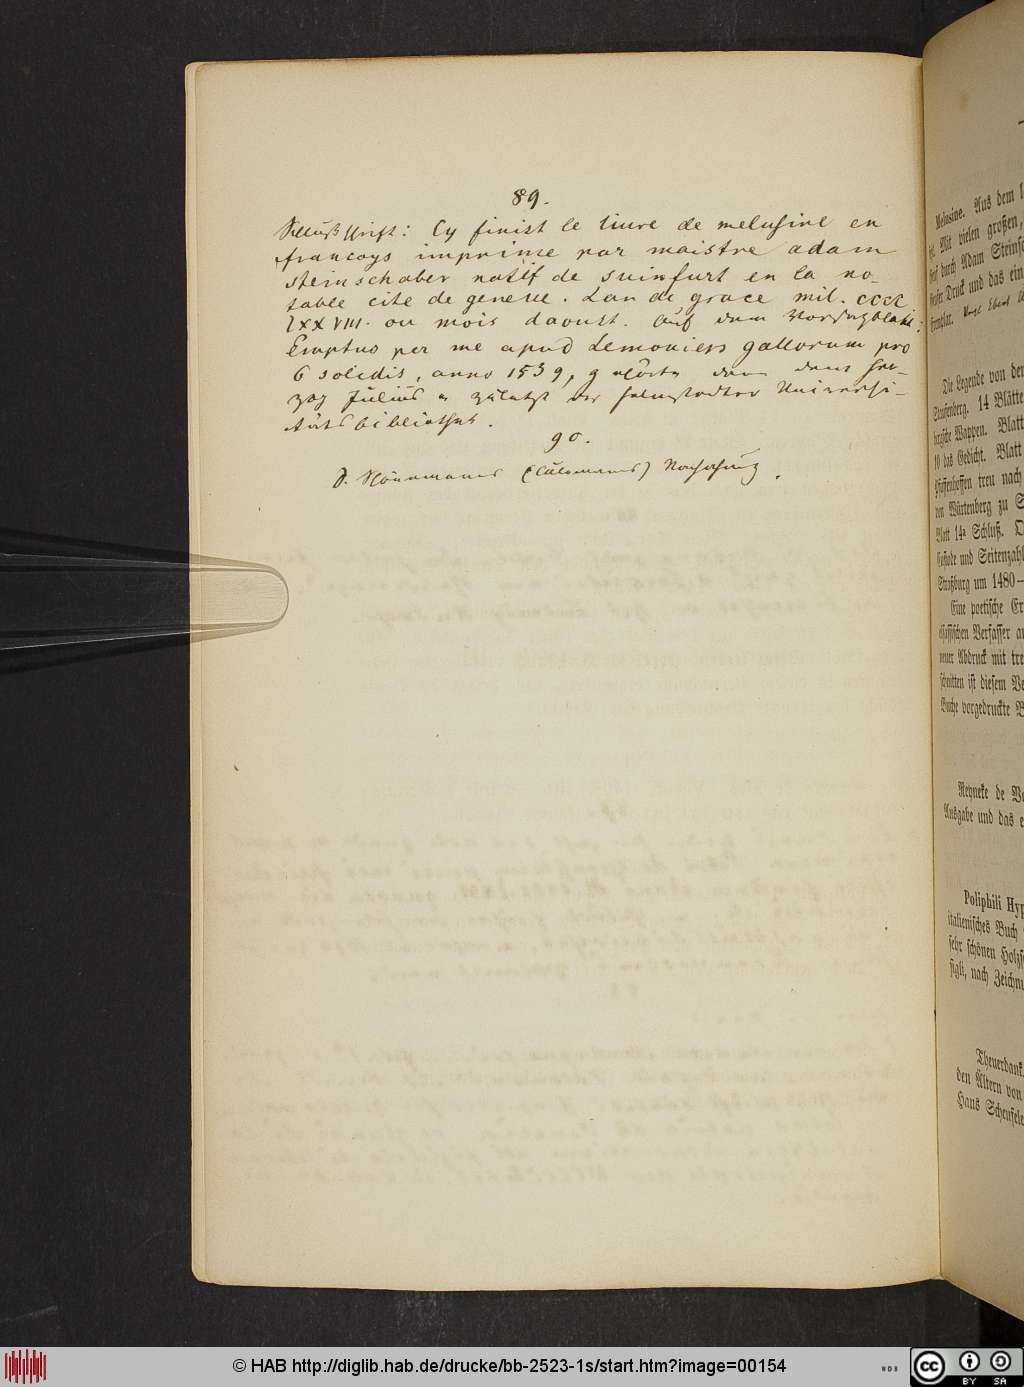 89.
Schlußschrift: Cy finist le liure de melusine en
francoys imprime par maistre adam
steinschaber natif de suinfurt en la no-
table cite de geneue. Lan de grace mil. cccc
lxxviii. ou mois daoust. Auf dem Vorsatzblatt:
Emptus per me apud Lemoniers gallorum pro
6 solidis, anno 1539, gehörte dann dem Her-
zog Julius u zuletzt der Helmstedter Universi-
tätsbibliothek.
90.
S. Schönemanns (Culemanns) Nachschrift.
Melusine. Aus dem
Mit vielen großen,
durch Adam Steinsc
Druck und das ein
Exemplar.
Die Legende von der
Staufenberg. 14 Blätte
Wappen. Blatt
10 das Gedicht. Blatt
treu nach
von Würtenberg zu S
Blatt 14a Schluß.
und Seitenzahl
Straßburg um 1480—
Eine poetische Er
elsässischen Verfasser
neuer Abdruck mit tre
schnitten ist diesem
Buche vorgedruckte B
Reyneke de Vo
Ausgabe und das e
Poliphili Hyp
italienisches Buch
sehr schönen Holzs
figli, nach Zeichn
Theuerdank.
den Ältern von
Hans Scheufele
© HAB http://diglib.hab.de/drucke/bb-2523-1s/start.htm?image=00154
WDB
cc
BY SA